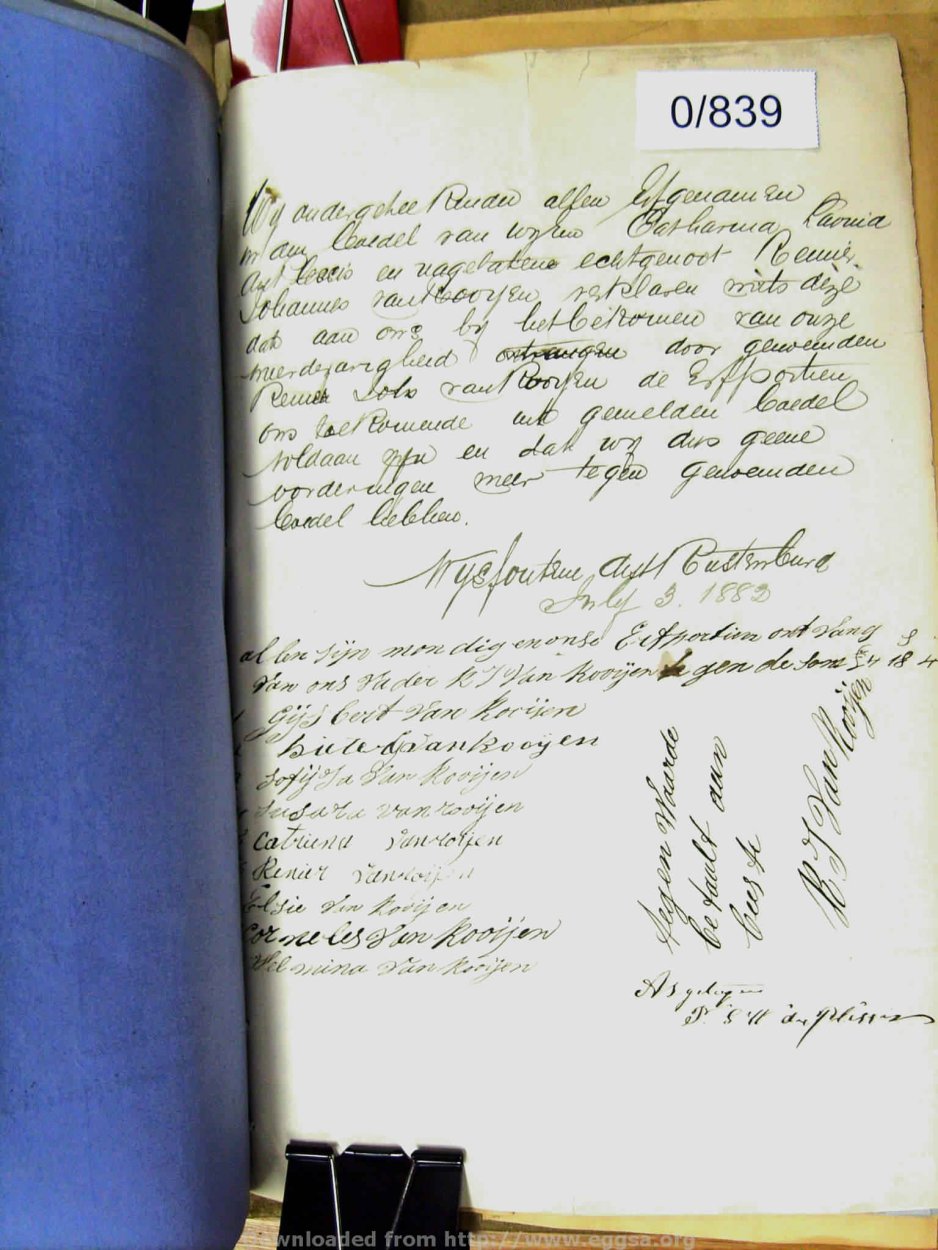 0/839
Wij ondergeteekenden allen Erfgenamen
in den Boedel van wijlen Catharina Lavina
en nagelatene echtgenoot Renier
Johannes van Rooyen verklaren mits deze
dat aan ons bij het bekomen van onze
meerderjarigheid ontvangen door genoemden
Renier Johs van Rooyen de Erfportien
ons toekomende uit gemelden Boedel
voldaan zijn en dat wij dus geene
vorderingen meer tegen genoemden
Boedel hebben.
Wysfontein dist Rustenburg
July 3. 1883
allen sijn mondig en onse Erfportien ontvang
van ons vader R J Van Rooijen de som 18 4
Gijsbert Van Rooijen
Van Rooyen
Sofija Van Rooijen
Susara van rooijen
Catriena van rooijen
Renier van rooijen
Elsie Van Rooijen
Cornelis Van Rooijen
Wilmina Van Rooijen
tegen Waarde
betaalt aan
beeste
R J Van Rooijen
As getuigen
du Plessis
Downloaded from http://www.eggsa.org